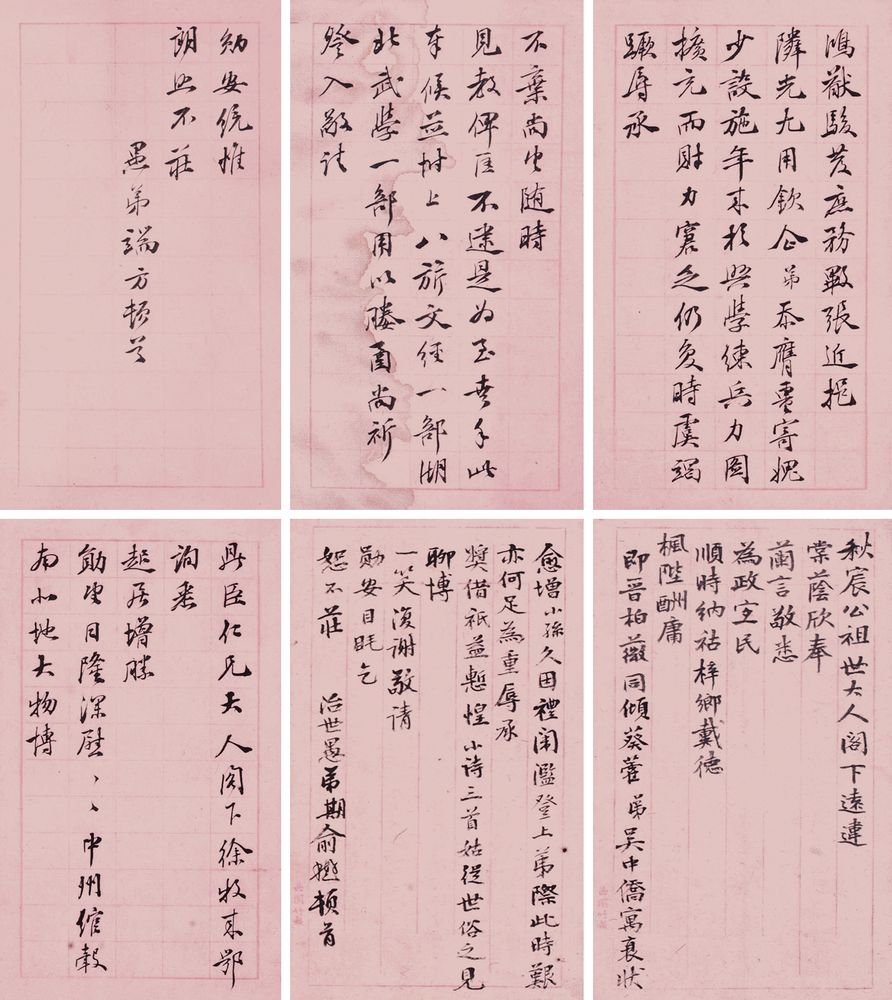 鴻猷駿發庶務畢張近挹
隣光尤用欽企弟忝膺畺寄媿
少設施年來於興學練兵力圖
擴充而財力窘乏仍多時虞竭
蹶辱承
不棄尚望随時
見教俾匡不逮是為至幸手此
奉候並附上八旂文經一部湖
北武學一部用以媵函尚祈
詧入敬請
勛安統惟
朗照不莊
愚弟端方頓首
秋宸公祖世大人閣下遠違
棠蔭欣奉
蘭言敬悉
為政宜民
順時納祜梓鄉戴德
楓陛酬庸
即晉柏薇同傾葵藿弟吳中僑寓衰狀
愈增小孫久困禮闈濫登上第際此時艱
亦何足為重辱承
獎借祇益慙惶小詩三首姑從世俗之見
聊博
一笑復謝敬請
勛安目眊乞
恕不莊 治世愚弟期俞樾頓首
鼎臣仁兄大人閣下徐牧來鄂
詢悉
起居增勝
勛望日隆深慰、、中州綰轂
南北地大物博